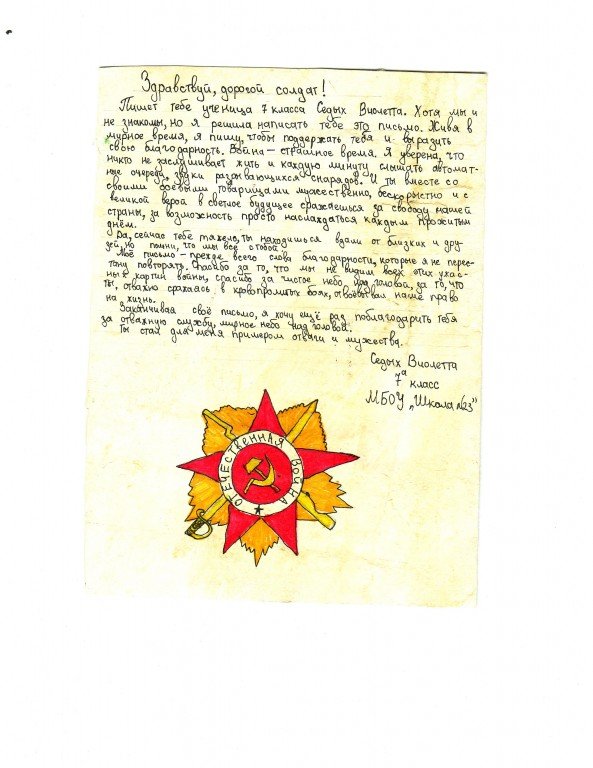 Здравствуй, дорогой солдат!
Пишет тебе ученица 7 класса Седых Виолетта. Хотя мы и
не знакомы, но я решила написать тебе это письмо. Живя в
мирное время, я пишу, чтобы поддержать тебя и выразить
свою благодарность. Война – страшное время. Я уверена, что
никто не заслуживает жить и каждую минуту слышать автомат-
ные очереди, звуки разрывающихся снарядов. И ты вместе со
своими боевыми товарищами мужественно, бескорыстно и с
великой верой в светлое будущее сражаешься за свободу нашей
страны, за возможность просто наслаждаться каждым прожитым
днём.
Да, сейчас тебе тяжело, ты находишься вдали от близких и дру-
зей, но помни, что мы все с тобой!
Моё письмо – прежде всего слова благодарности, которые я не перес-
тану повторять. Спасибо за то, что мы не видим всех этих ужас-
ных картин войны, спасибо за чистое небо над головой, за то, что
ты, отважно сражаясь в кровопролитных боях, отвоёвывал наше право
на жизнь.
Заканчивая своё письмо, я хочу ещё раз поблагодарить тебя
за отважную службу, мирное небо над головой.
Ты стал для меня примером отваги и мужества.
Седых Виолетта
7а класс
МБОУ „Школа №23"
ОТЕЧЕСТВЕННАЯ ВОЙНА